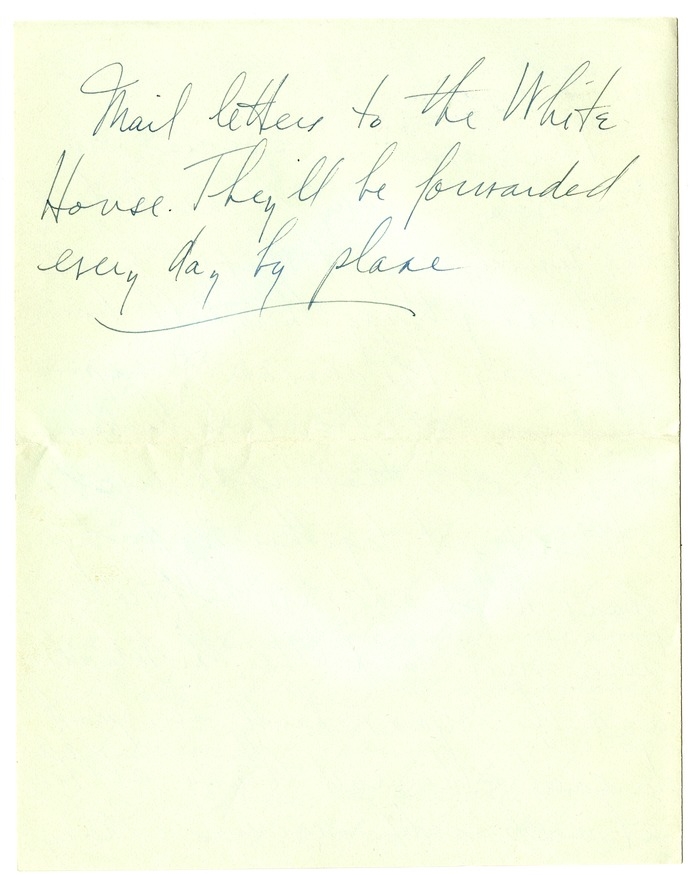 Mail letters to the White
House. They'll be forwarded
every day by plane